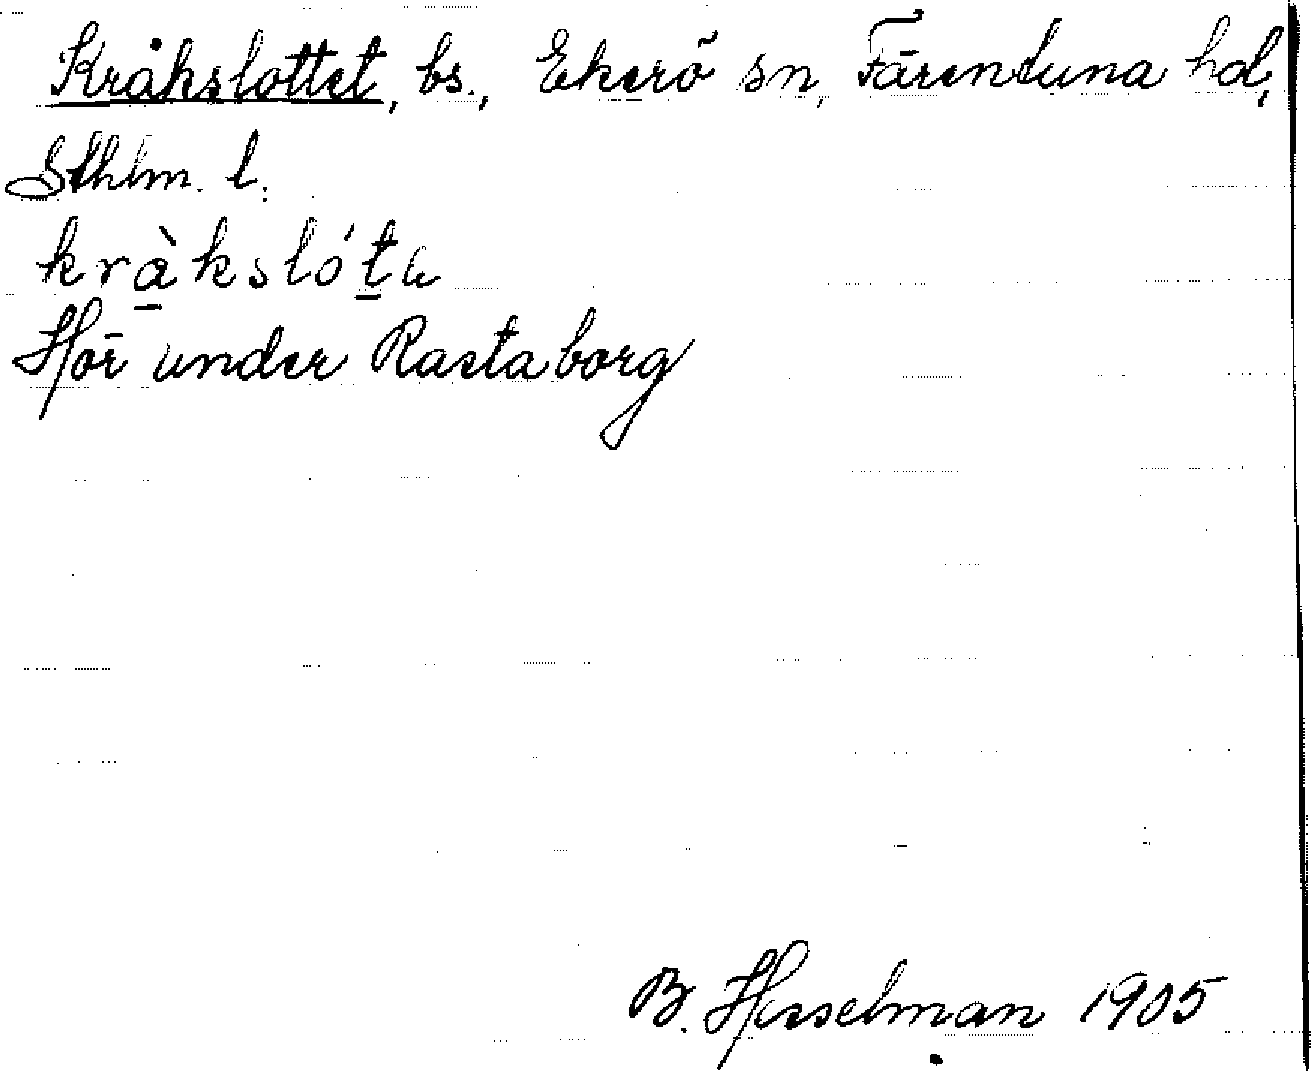 Kråkslottet, bs., Ekerö sn, Färentuna hd,
Sthlm. l.
kràkslóta
Hör under Rastaborg
B. Hesselman 1905